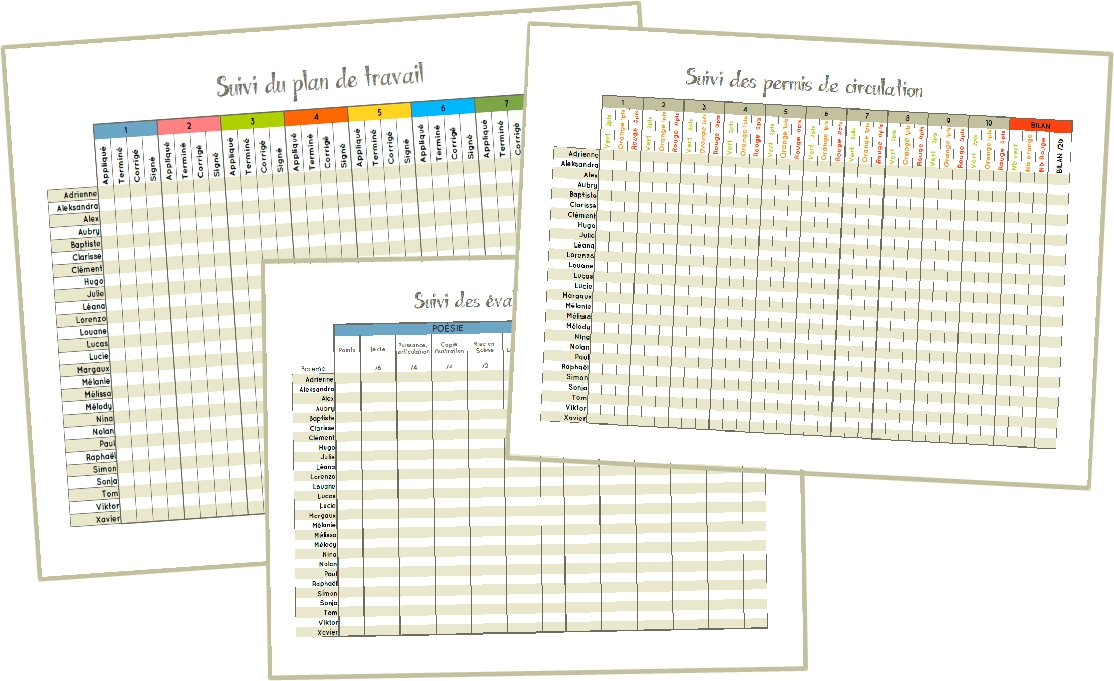 Suivi du plan de travail
1 2 3 4 5 6 7
Appliqué Terminé Corrigé Signé Appliqué Terminé Corrigé Signé Appliqué Terminé Corrigé Signé Appliqué Terminé Corrigé Signé Appliqué Terminé Corrigé Signé Appliqué Terminé Corrigé Signé Appliqué Terminé Corrigé
Adrienne
Aleksandra
Alex
Aubry
Baptiste
Clarisse
Clément
Hugo
Julie
Léana
Lorenzo
Louane
Lucas
Lucie
Margaux
Mélanie
Mélissa
Mélody
Nina
Nolan
Paul
Raphaël
Simon
Sonja
Tom
Viktor
Xavier
Suivi des permis de circulation
1 2 3 4 5 6 7 8 9 10 BILAN
Vert 2pts Orange 1pts Rouge 0pts Vert 2pts Orange 1pts Rouge 0pts Vert 2pts Orange 1pts Rouge 0pts Vert 2pts Orange 1pts Rouge 0pts Vert 2pts Orange 1pts Rouge 0pts Vert 2pts Orange 1pts Rouge 0pts Vert 2pts Orange 1pts Rouge 0pts Vert 2pts Orange 1pts Rouge 0pts Vert 2pts Orange 1pts Rouge 0pts Vert 2pts Orange 1pts Rouge 0pts Nb vert Nb orange Nb Rouge BILAN /20
Adrienne
Aleksandra
Alex
Aubry
Baptiste
Clarisse
Clément
Hugo
Julie
Léana
Lorenzo
Louane
Lucas
Lucie
Margaux
Mélanie
Mélissa
Mélody
Nina
Nolan
Paul
Raphaël
Simon
Sonja
Tom
Viktor
Xavier
Suivi des éva
POÉSIE
Points Texte Puissance, articulation Copie illustration Mise en Scène
Barème /6 /4 /2
Adrienne
Aleksandra
Alex
Aubry
Baptiste
Clarisse
Clément
Hugo
Julie
Léana
Lorenzo
Louane
Lucas
Lucie
Margaux
Mélanie
Mélissa
Mélody
Nina
Nolan
Paul
Raphaël
Simon
Sonja
Tom
Viktor
Xavier